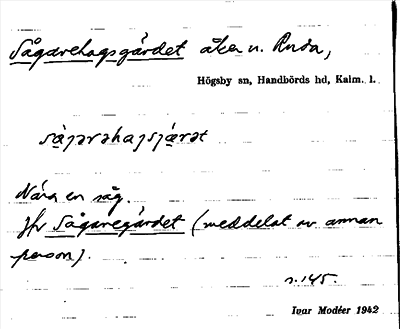 Sågarehagsgärdet åker u. Ruda,
Högsby sn, Handbörds hd, Kalm. l.
Nära en såg.
Jfr Sågaregärdet (meddelat av annan
person).
s. 145.
Ivar Modéer 1942